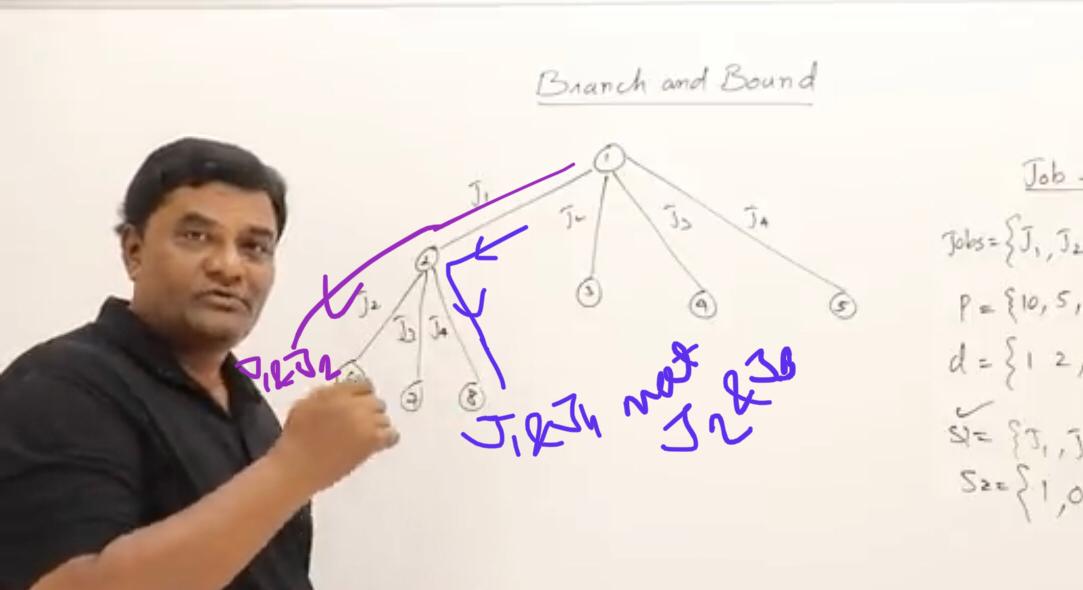 Branch and Bound
1
J1
J2
J3
J4
2
3
4
5
J2
J3
J4
7
8
J1&J2
J1&J4 not
J2&J3
Job
Jobs={J1, J2
P = {10, 5,
d = {1 2,
✓
S1= {J1, J
S2={1, 0